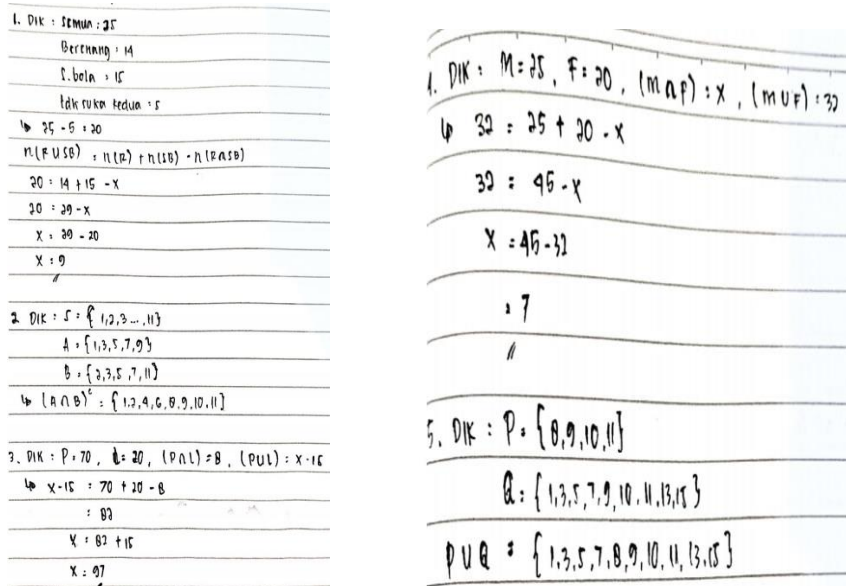 1. DIK : Semua : 25
Berenang : 14
S.bola : 15
tdk suka kedua : 5
↳ 25 - 5 : 20
n(RUSB) : n(R) + n(SB) - n(R∩SB)
20 : 14 + 15 - X
20 : 29 - X
X : 29 - 20
X : 9
2 DIK : S : { 1,2,3 ..., 11}
A : {1,3,5,7,9}
B : {2,3,5,7,11}
↳ (A∩B)ᶜ : { 1,2,4,6,8,9,10,11}
3. DIK : P : 70, L : 20, (P∩L) = 8, (PUL) : X-15
↳ X-15 : 70 + 20 - 8
: 82
X : 82 + 15
X : 97
4. DIK : M : 25, F : 20, (M∩F) : X, (MUF) : 32
↳ 32 : 25 + 20 - X
32 : 45 - X
X : 45 - 32
: 7
5. DIK : P : {8,9,10,11}
Q : {1,3,5,7,9,10,11,13,15}
PUQ : {1,3,5,7,8,9,10,11,13,15}